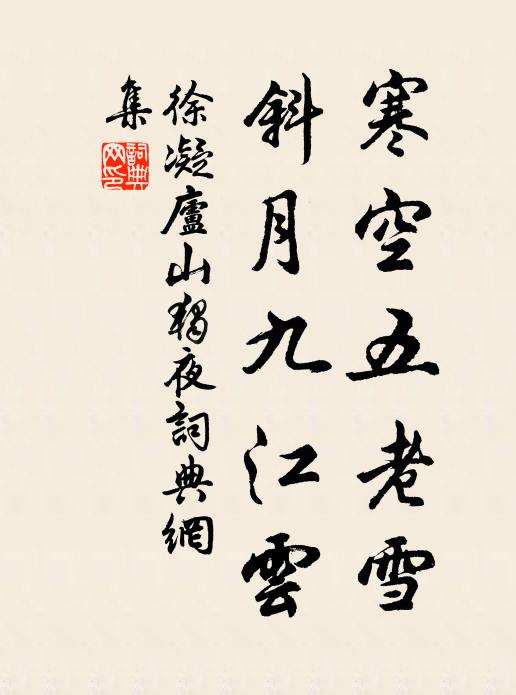 寒空五老雪
斜月九江雲
徐凝廬山獨夜詞典網
集
詞典網印